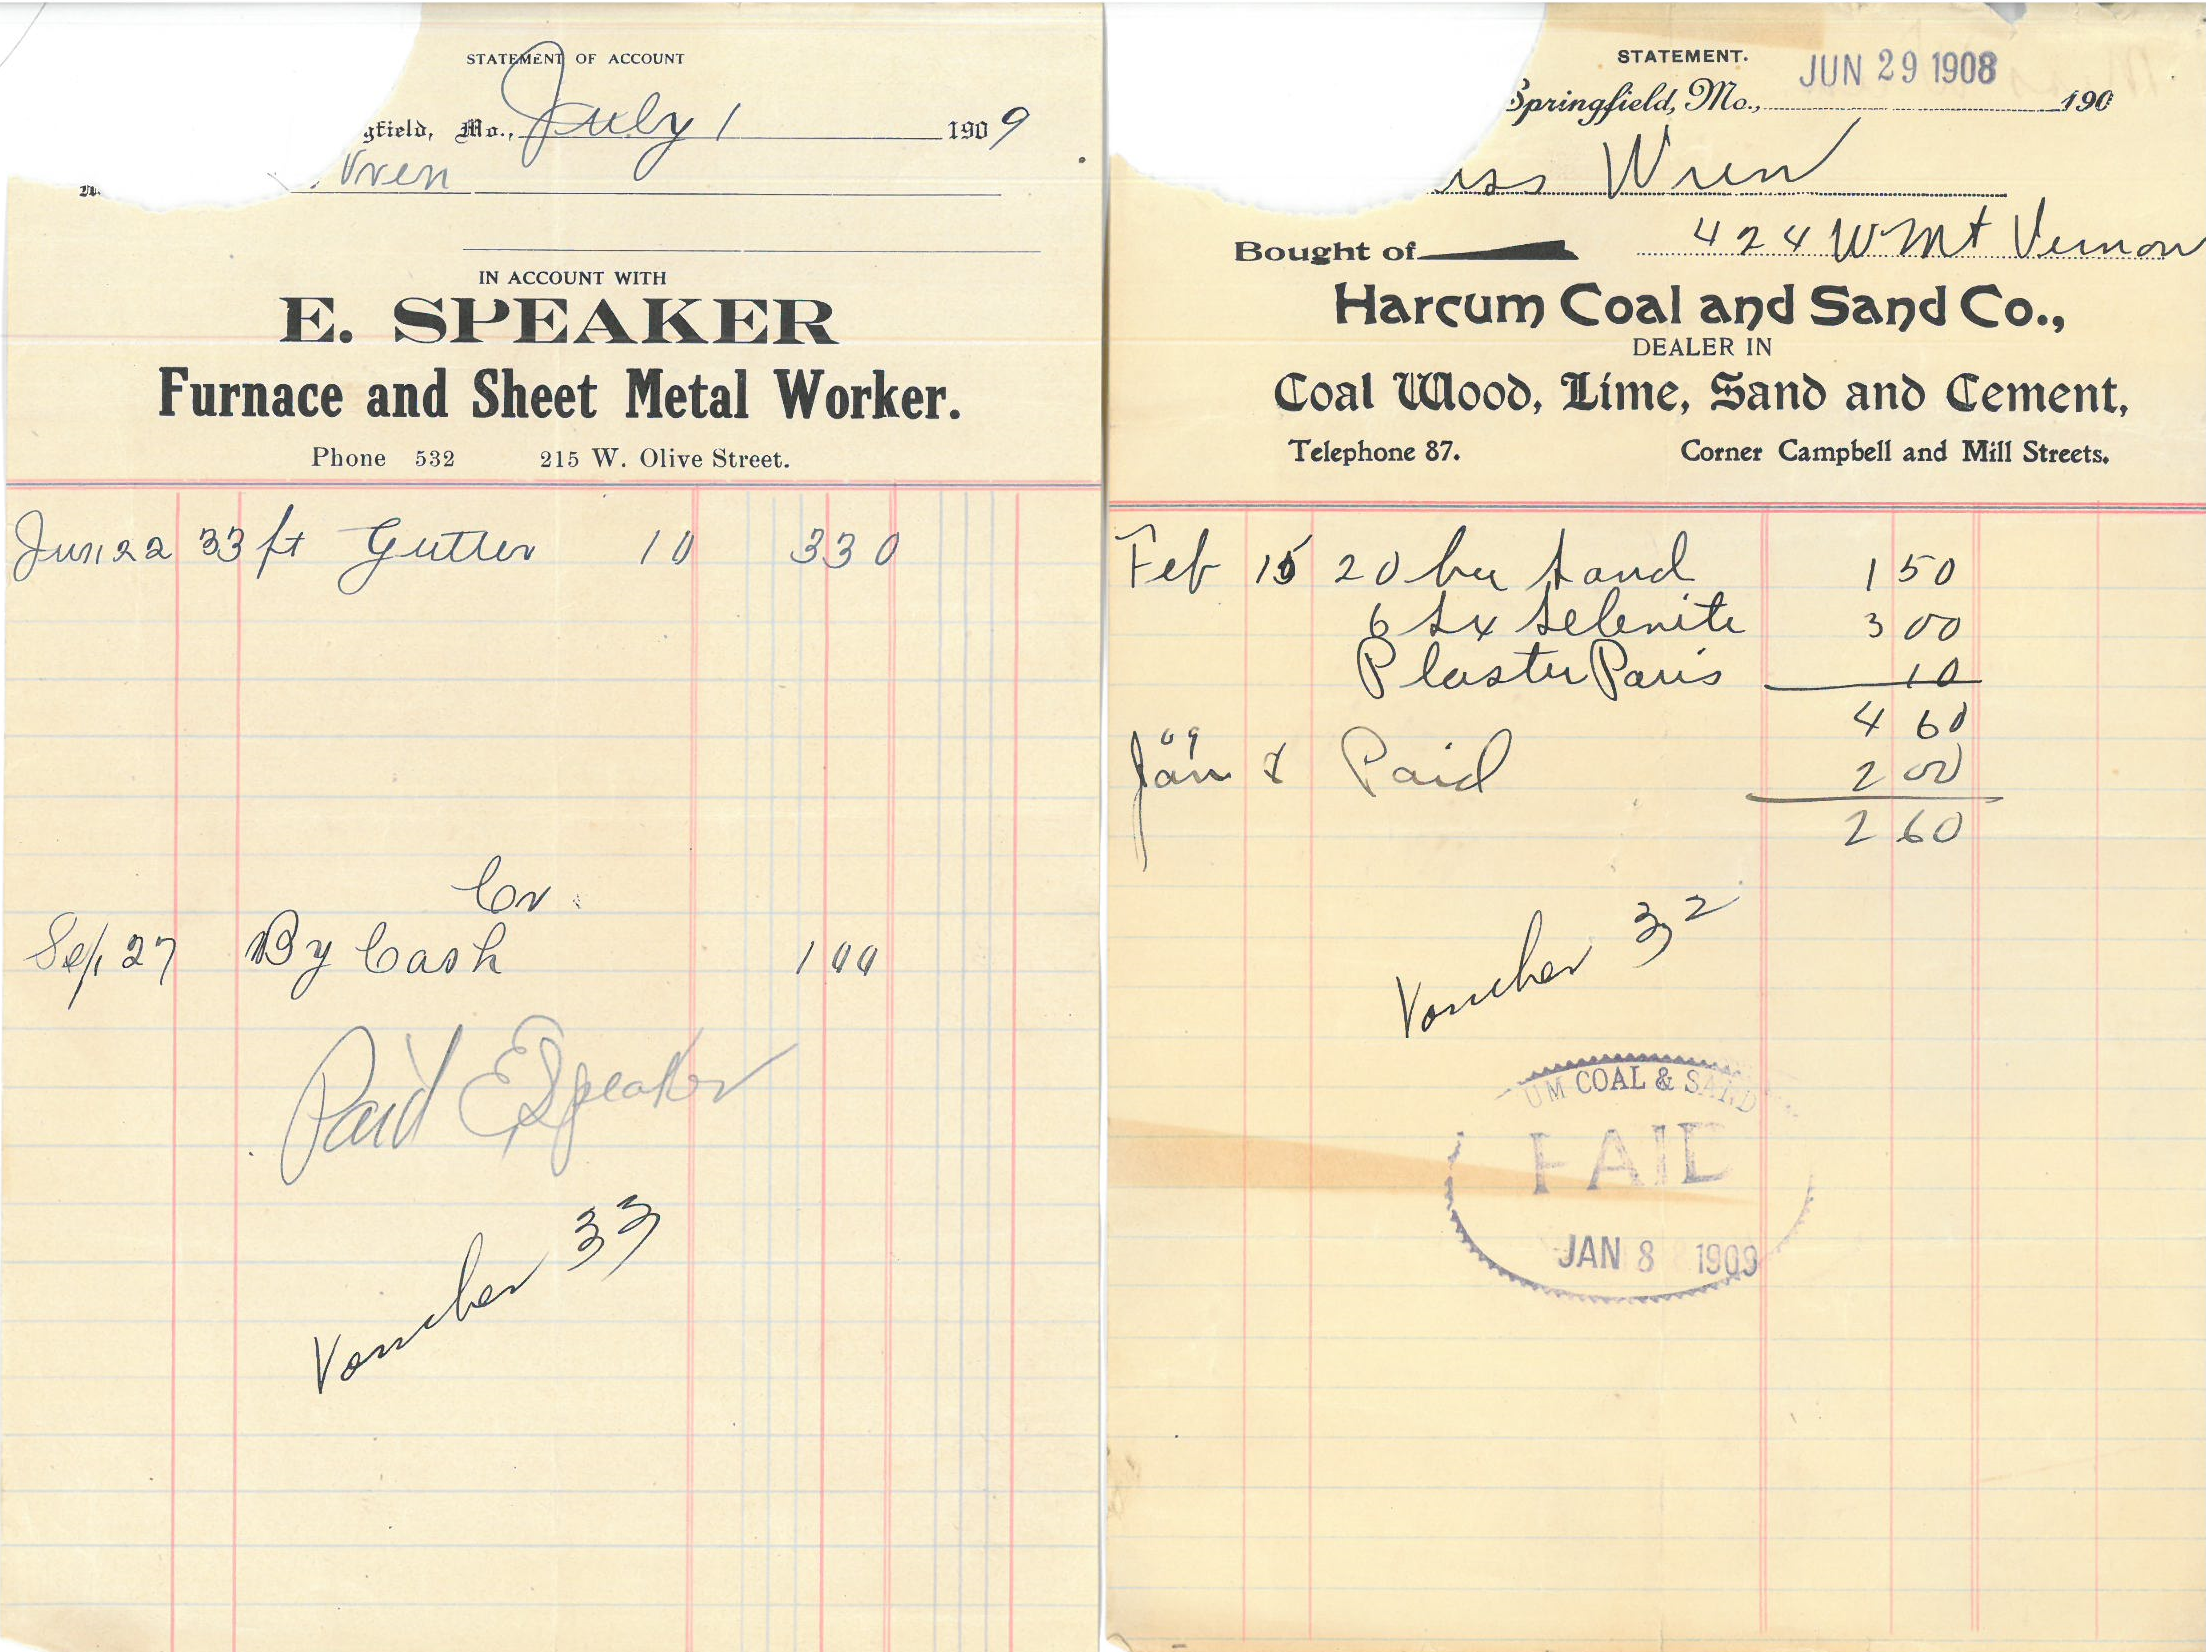 STATEMENT OF ACCOUNT
gfield, Mo., July 1 1909
Wren
IN ACCOUNT WITH
E. SPEAKER
Furnace and Sheet Metal Worker.
Phone 532 215 W. Olive Street.
Jun 22 33 ft Gutter 10 3 30
Cr.
Sep 27 By Cash 1 00
Paid E Speaker
Voucher 33
STATEMENT.
JUN 29 1908
Springfield, Mo., 190
iss Wren
Bought of 424 W Mt Vernon
Harcum Coal and Sand Co.,
DEALER IN
Coal Wood, Lime, Sand and Cement,
Telephone 87. Corner Campbell and Mill Streets.
Feb 15 20 bu Sand 1 50
6 sx Selenite 3 00
Plaster Paris 10
4 60
09
Jan 8 Paid 2 00
2 60
Voucher 32
UM COAL & SAND
PAID
JAN 8 1909